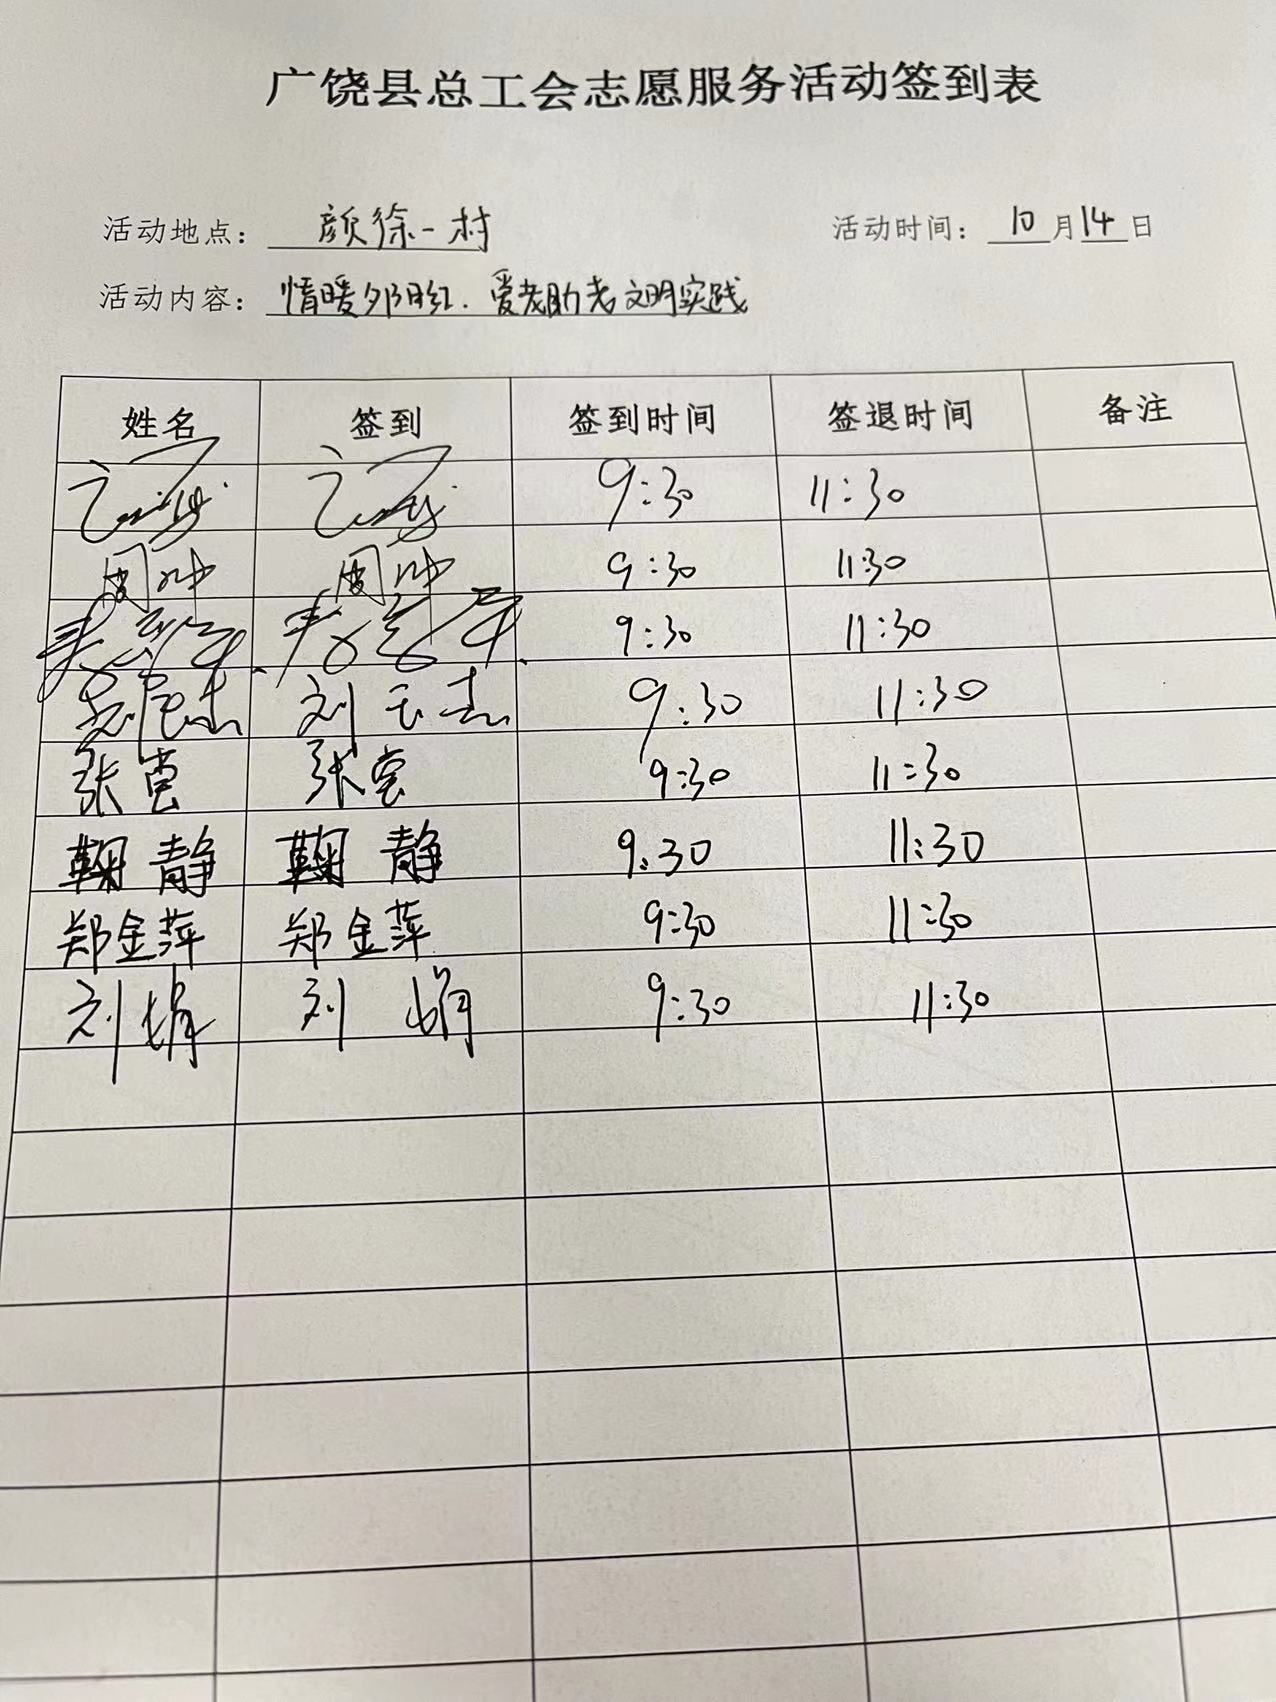 广饶县总工会志愿服务活动签到表
活动地点：颜徐一村 活动时间：10月14日
活动内容：情暖夕阳红.爱老助老文明实践
姓名 签到 签到时间 签退时间 备注
9:30 11:30
周冲 周冲 9:30 11:30
9:30 11:30
刘 志 9:30 11:30
张 张 9:30 11:30
鞠静 鞠静 9:30 11:30
郑金萍 郑金萍 9:30 11:30
刘娟 刘娟 9:30 11:30